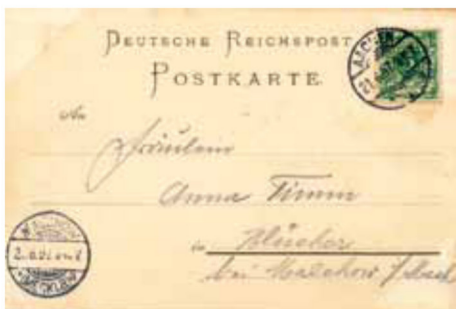 DEUTSCHE REICHSPOST
POSTKARTE
AACHEN
An
Fräulein
Anna Timm
in Blücher
bei Malchow